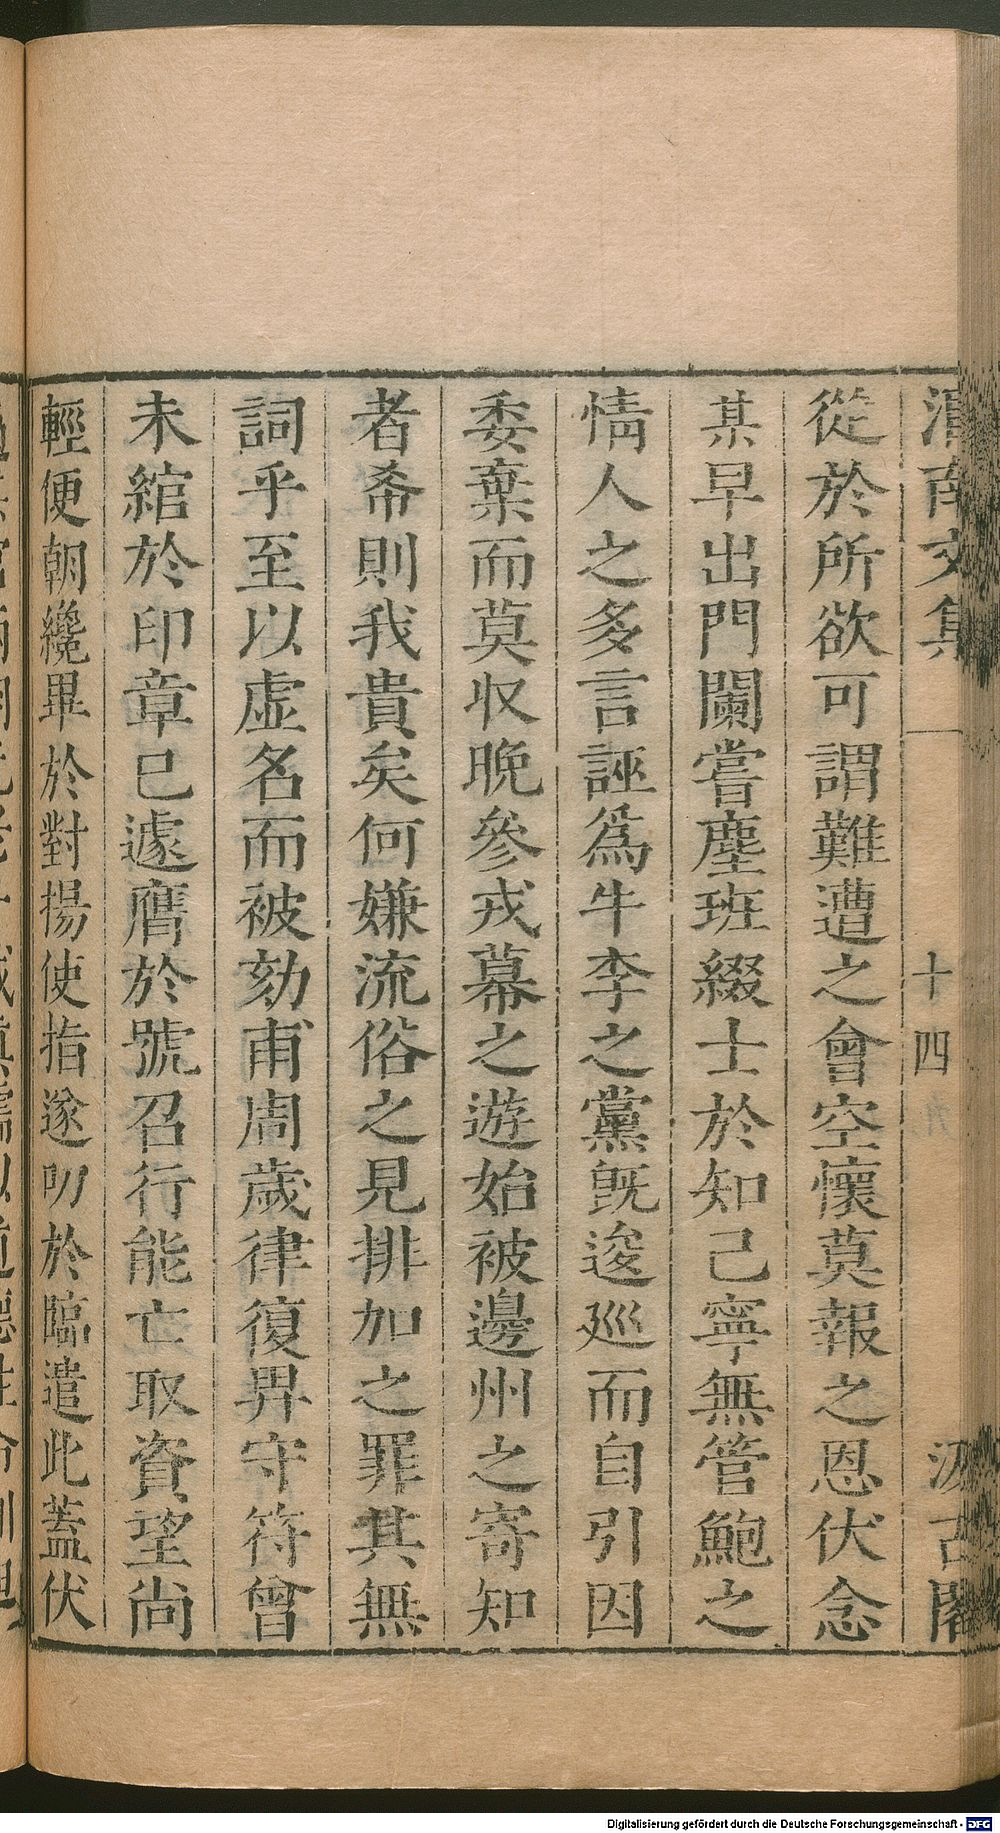 渭南文集 十四 汲古閣
從於所欲可謂難遭之會空懷莫報之恩伏念
某早出門闌嘗塵班綴士於知己寧無管鮑之
情人之多言誣爲牛李之黨旣逡巡而自引因
委棄而莫収晚參戎幕之遊始被邊州之寄知
者希則我貴矣何嫌流俗之見排加之罪其無
詞乎至以虛名而被劾甫周歲律復畀守符曾
未綰於印章已遽膺於號召行能亡取資望尚
輕便朝纔畢於對揚使指遂叨於臨遣此蓋伏
Digitalisierung gefördert durch die Deutsche Forschungsgemeinschaft - DFG